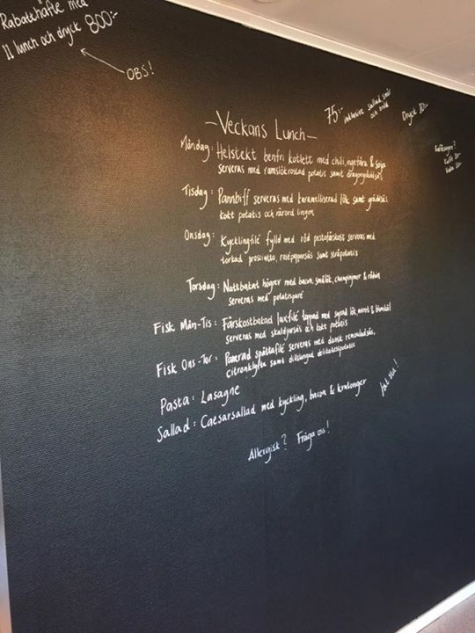 Rabatthäfte med
11 lunch och dryck 800:-
OBS!
75:-
inklusive sallad, smör
och bröd
Dryck 10:-
- Veckans Lunch -
Måndag: Helstekt benfri kotlett med chili, ingefära & soja
serveras med ramslöksrostad potatis samt
Tisdag: Pannbiff serveras med karamelliserad lök samt gräddsås,
kokt potatis och rårörd lingon
Onsdag: Kycklingfilé fylld med röd pestofärskost serveras med
torkad prosciutto, rödpepparsås samt
Torsdag: Nötbakat högrev med bacon, smålök, champinjoner & rödvin
serveras med potatispuré
Fisk Mån-Tis: Färskostbakad laxfilé toppad med syrad lök, morot &
serveras med skaldjurssås och kokt potatis
Fisk Ons-Tor: Panerad spättafilé serveras med dansk remouladsås,
citronklyfta samt dillslungad delikatesspotatis
Pasta: Lasagne
Sallad: Caesarsallad med kyckling, bacon & krutonger
Allergisk? Fråga oss!